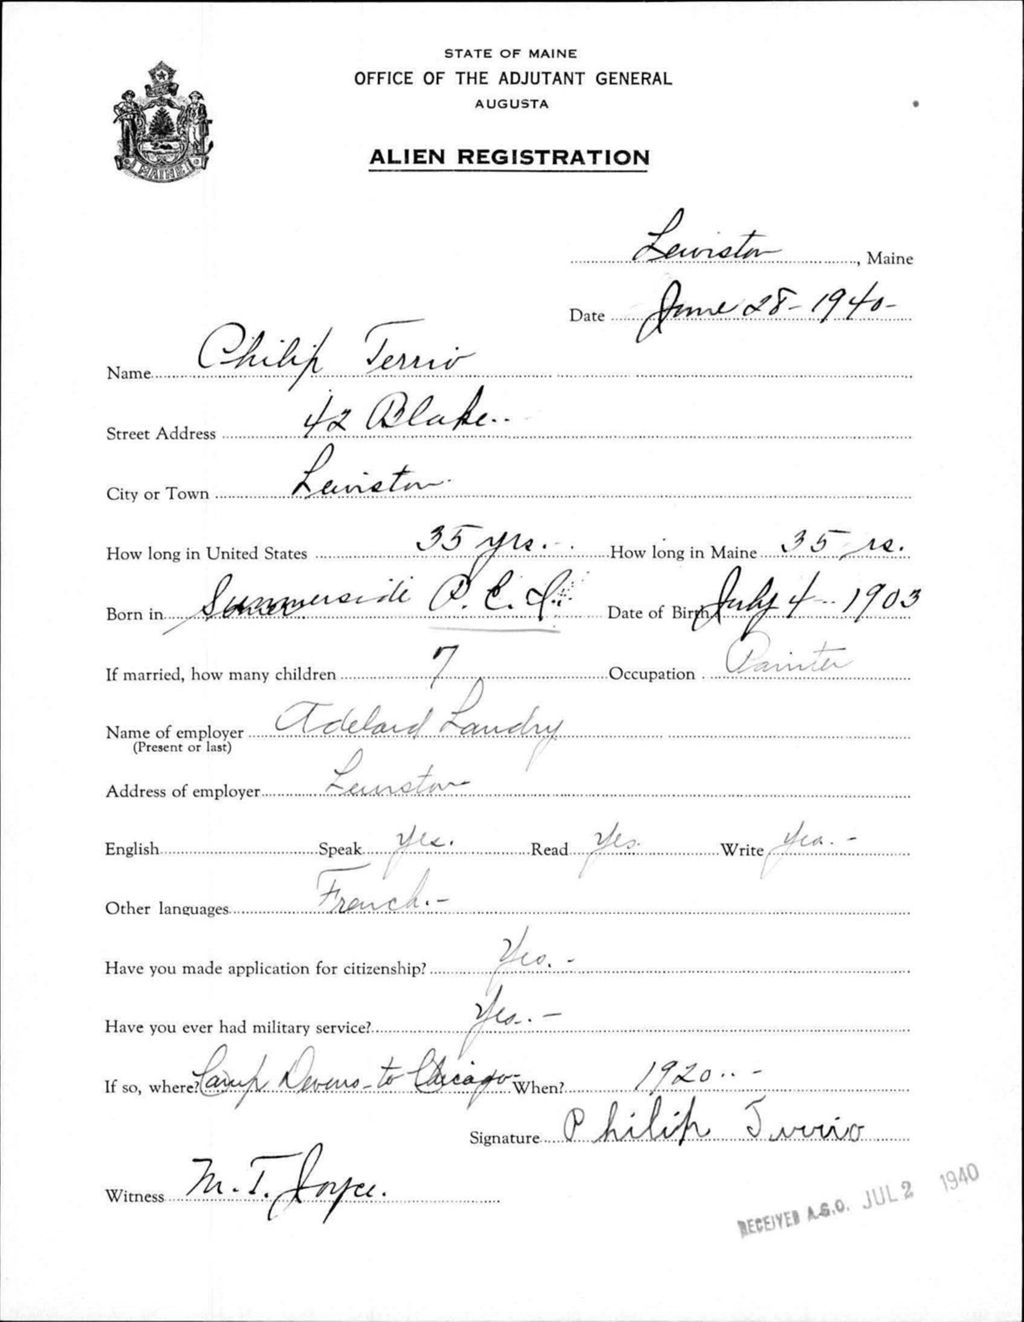 STATE OF MAINE
OFFICE OF THE ADJUTANT GENERAL
AUGUSTA
ALIEN REGISTRATION
MAINE
Lewiston, Maine
Date June 28-1940-
Name Philip Terrio
Street Address 42 Blake..
City or Town Lewiston
How long in United States 35 yrs. How long in Maine 35 rs.
Born in Summerside P.E.I. Date of Birth July 4-1903
If married, how many children 7 Occupation Painter
Name of employer Adelard Landry
(Present or last)
Address of employer Lewiston
English Speak Yes. Read Yes. Write Yes.-
Other languages French.-
Have you made application for citizenship? Yes.-
Have you ever had military service? Yes.-
If so, where? Camp Devens-to Chicago- When? 1920..-
Signature Philip Terrio
Witness M.T. Joyce.
RECEIVED A.G.O. JUL 2 1940